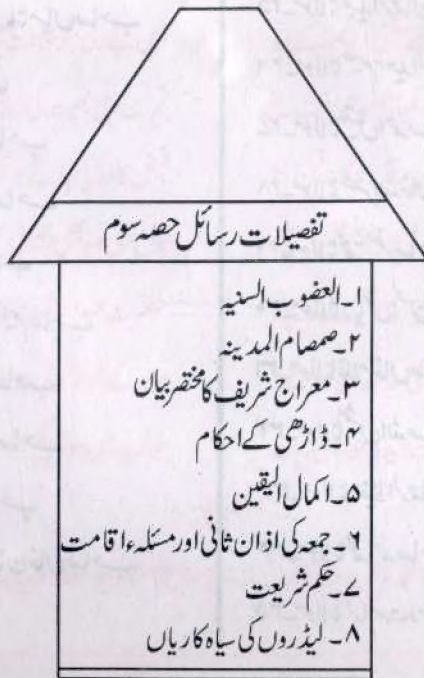 تفصیلات رسائل حصہ سوم
۱۔العضوب السنیہ
۲۔صمصام المدینہ
۳۔معراج شریف کا مختصر بیان
۴۔ڈاڑھی کے احکام
۵۔اکمال الیقین
۶۔جمعہ کی اذان ثانی اور مسئلہء اقامت
۷۔حکم شریعت
۸۔لیڈروں کی سیاہ کاریاں